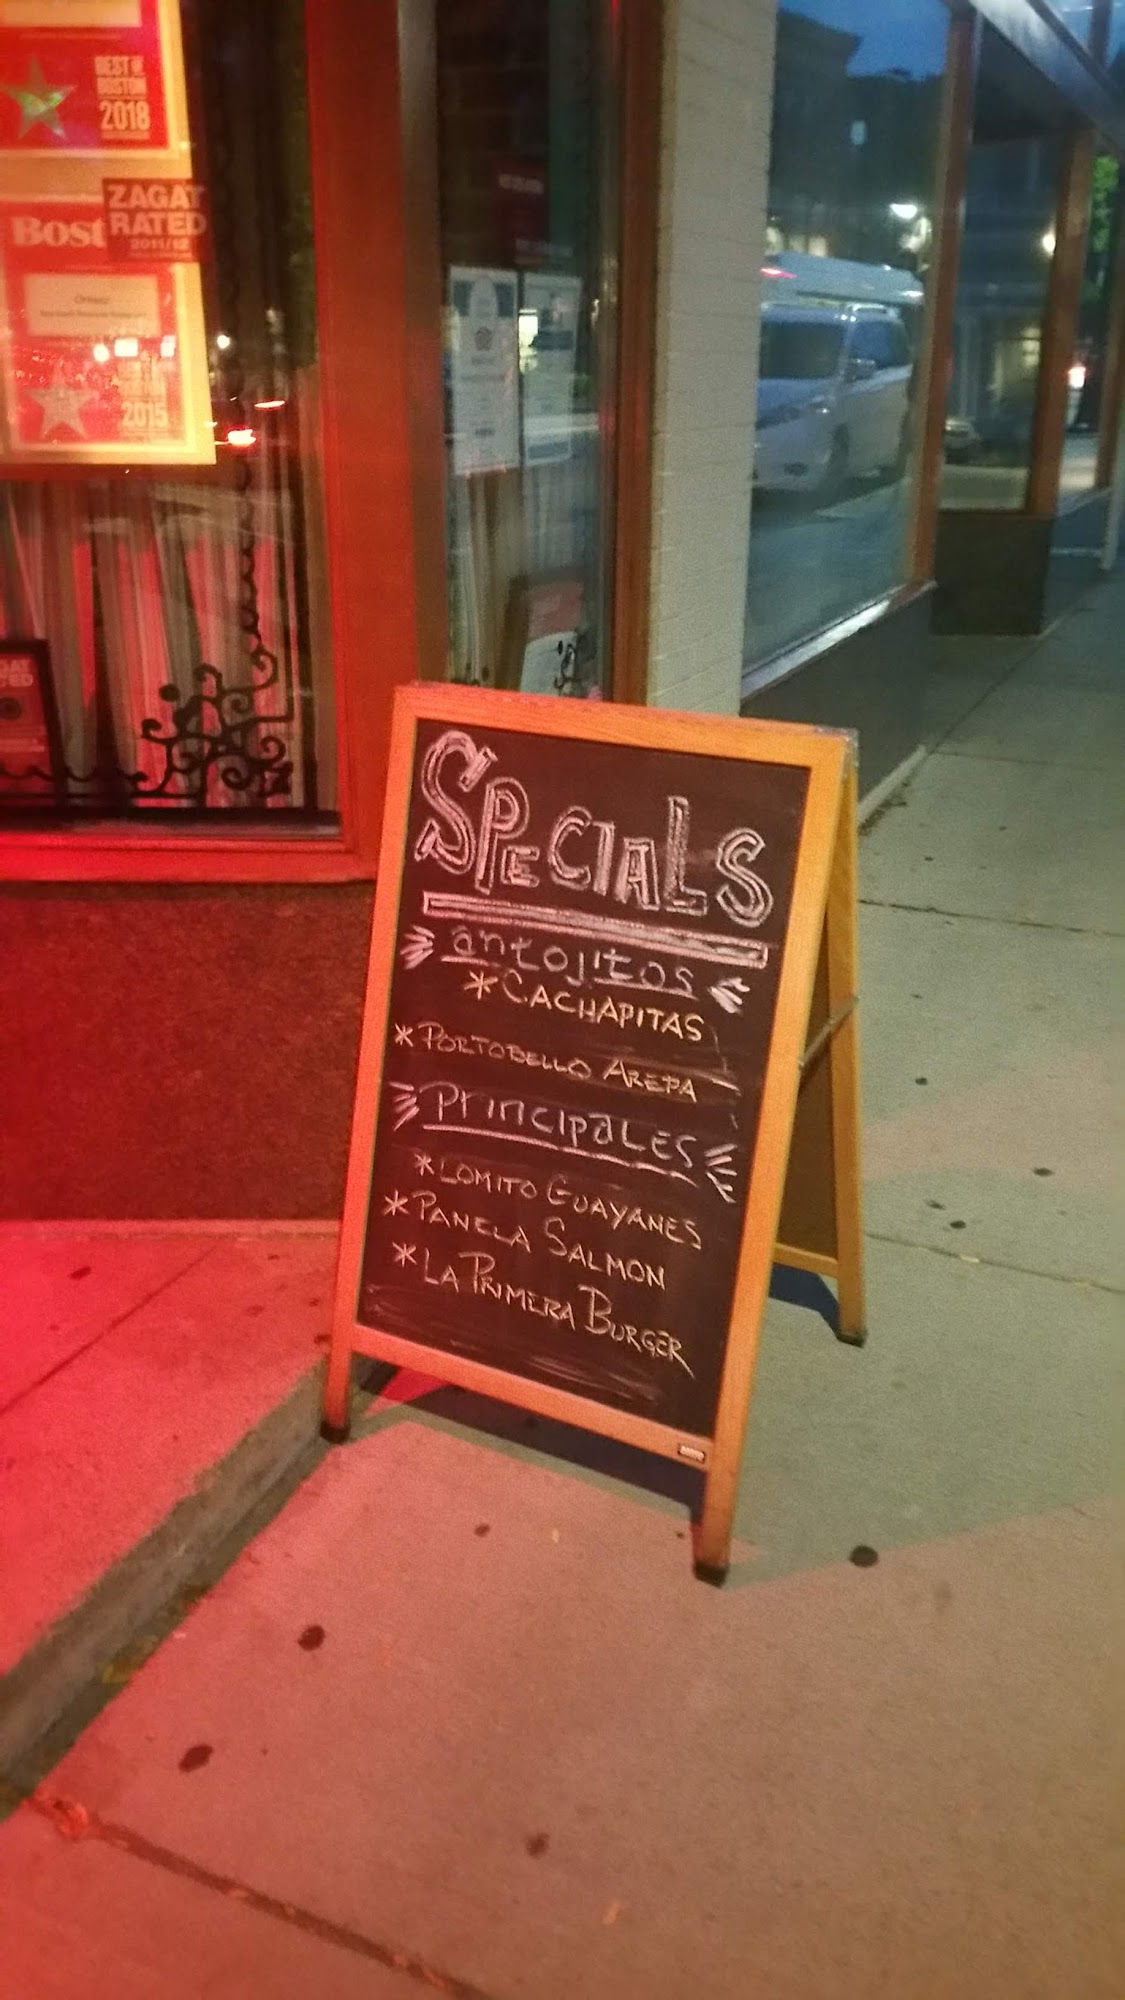 BEST OF
BOSTON
2018
ZAGAT
RATED
2011/12
Bost
2015
ZAGAT
RATED
SPECIALS
antojitos
*CACHAPITAS
*PORTOBELLO AREPA
PrincipaLES
*LOMITO GUAYANES
*PANELA SALMON
*LA PRIMERA BURGER